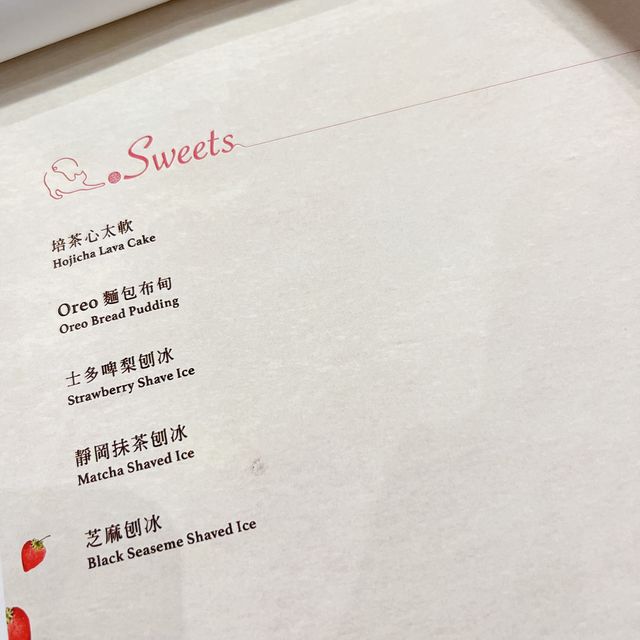 Sweets
培茶心太軟
Hojicha Lava Cake
Oreo 麵包布甸
Oreo Bread Pudding
士多啤梨刨冰
Strawberry Shave Ice
靜岡抹茶刨冰
Matcha Shaved Ice
芝麻刨冰
Black Seaseme Shaved Ice